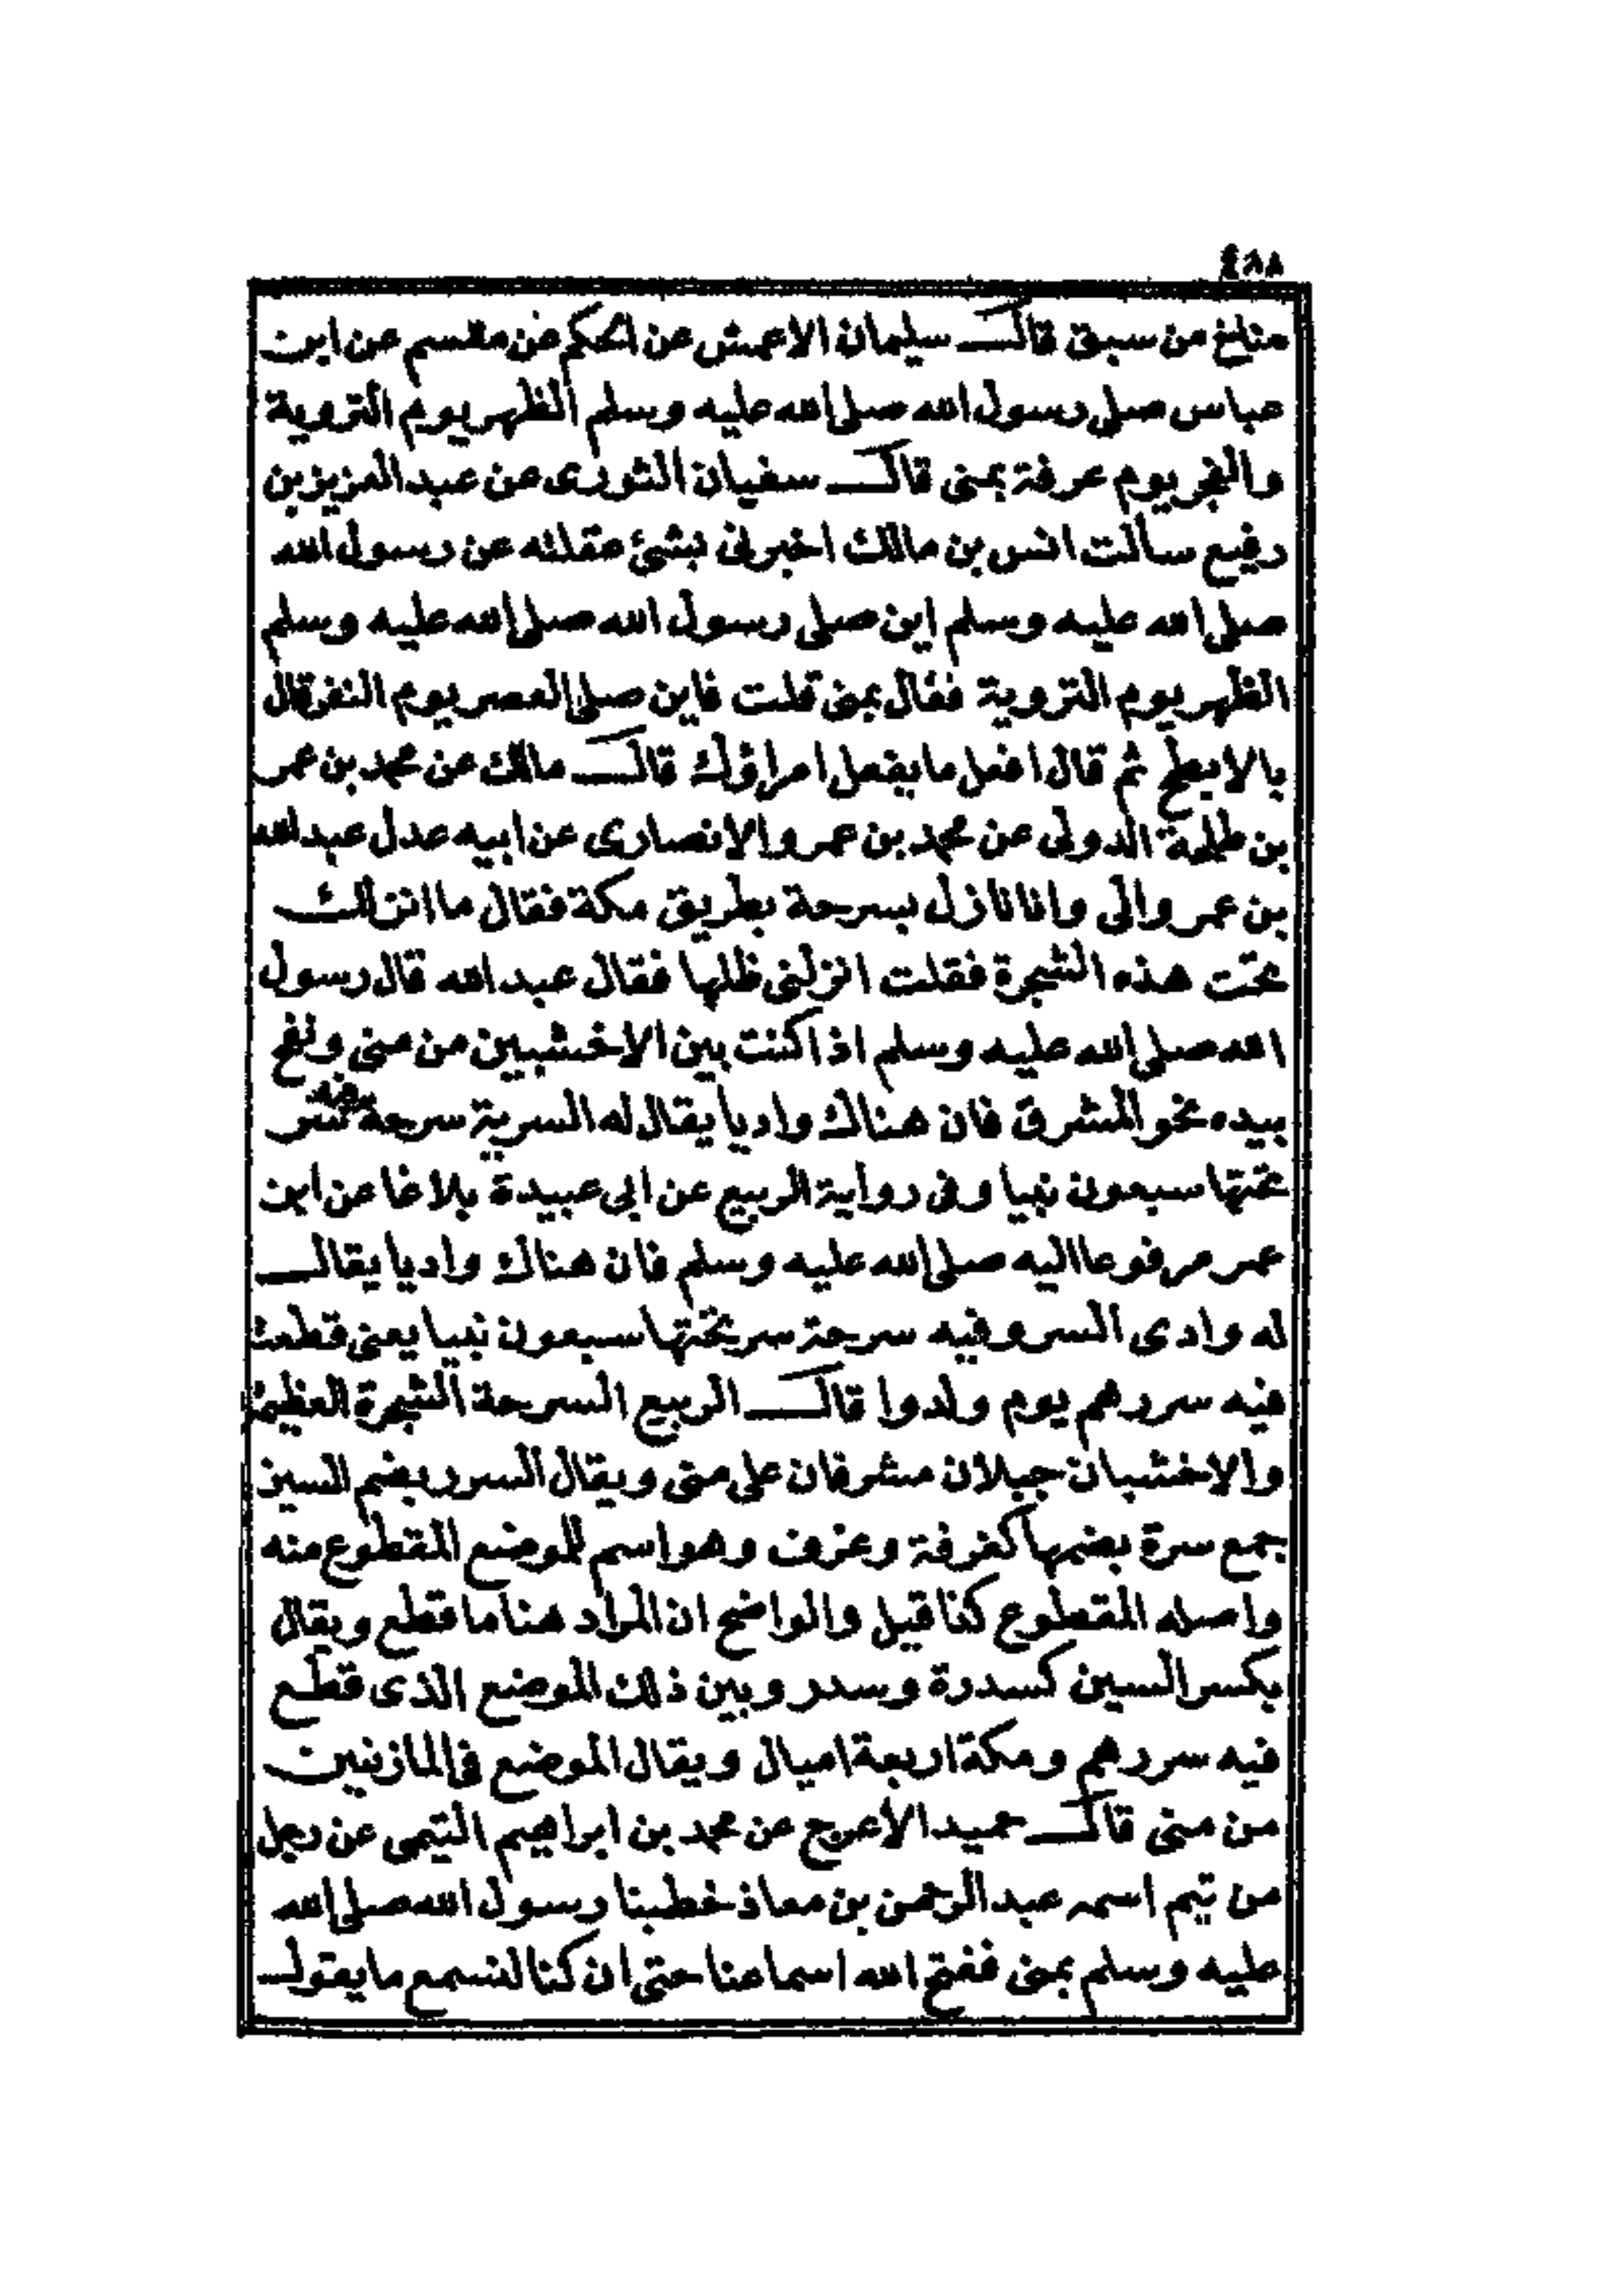 ٤٨٨
مناخ من سبق قال سليمان الاعمش عن الحكم عن مقسم عن ابن
عباس صلى رسول الله صلى الله عليه وسلم الظهر يوم التروية
والفجر يوم عرفة بمنى قال سفيان الثورى عن عبد العزيز بن
رفيع سالت انس بن مالك اخبرنى بشئ عقلته عن رسول الله
صلى الله عليه وسلم اين صلى رسول الله صلى الله عليه وسلم
الظهر يوم التروية فقال بمنى قلت فاين صلى العصر يوم النفر قال
بالابطح ثم قال افعل ما يفعل امراؤك قال مالك عن محمد بن عمر
بن طلحة الدولى عن محمد بن عمر والانصارى عن ابيه عدل عبد الله
بن عمر والى وانا نازل بسرحة بطريق مكة فقال ما انزلك
تحت هذه الشجرة فقلت انزلنى ظلها فقال عبد الله قال رسول
الله صلى الله عليه وسلم اذا كنت بين الاخشبين من منى ونفخ
بيده نحو المشرق فان هناك واديا يقال له السرية سرحة سر
تحتها سبعون نبيا وفى رواية الربيع عن ابى عبيدة بلاغا عن ابن
عمر مرفوعا اليه صلى الله عليه وسلم فان هناك واديا يقال
له وادى السر وفيه سرحة سر تحتها سبعون نبيا يعنى قطعت
فيه سررهم يوم ولدوا قال الربيع السرحة الشجرة العظيمة
والاخشبان جبلان مشرفان على منى ويقال السرر بضم السين
جمع سرة بضمها كغرفة وغرف وهو اسم للموضع المقطوع منه
واصله المقطوع كذا قيل والواضح ان المراد هنا ما قطع ويقال
بكسر السين كسدرة وسدر وبين ذلك الموضع الذى قطع
فيه سررهم ومكة اربعة اميال ويقال الموضع فى المازنين
من منى قال حميد الأعرج عن محمد بن ابراهيم التيمى عن رجل
من تيم اسمه عبد الرحمن بن معاذ خطبنا رسول الله صلى الله
عليه وسلم بمنى ففتح الله اسماعنا حتى ان كنا لنسمع ما يقول